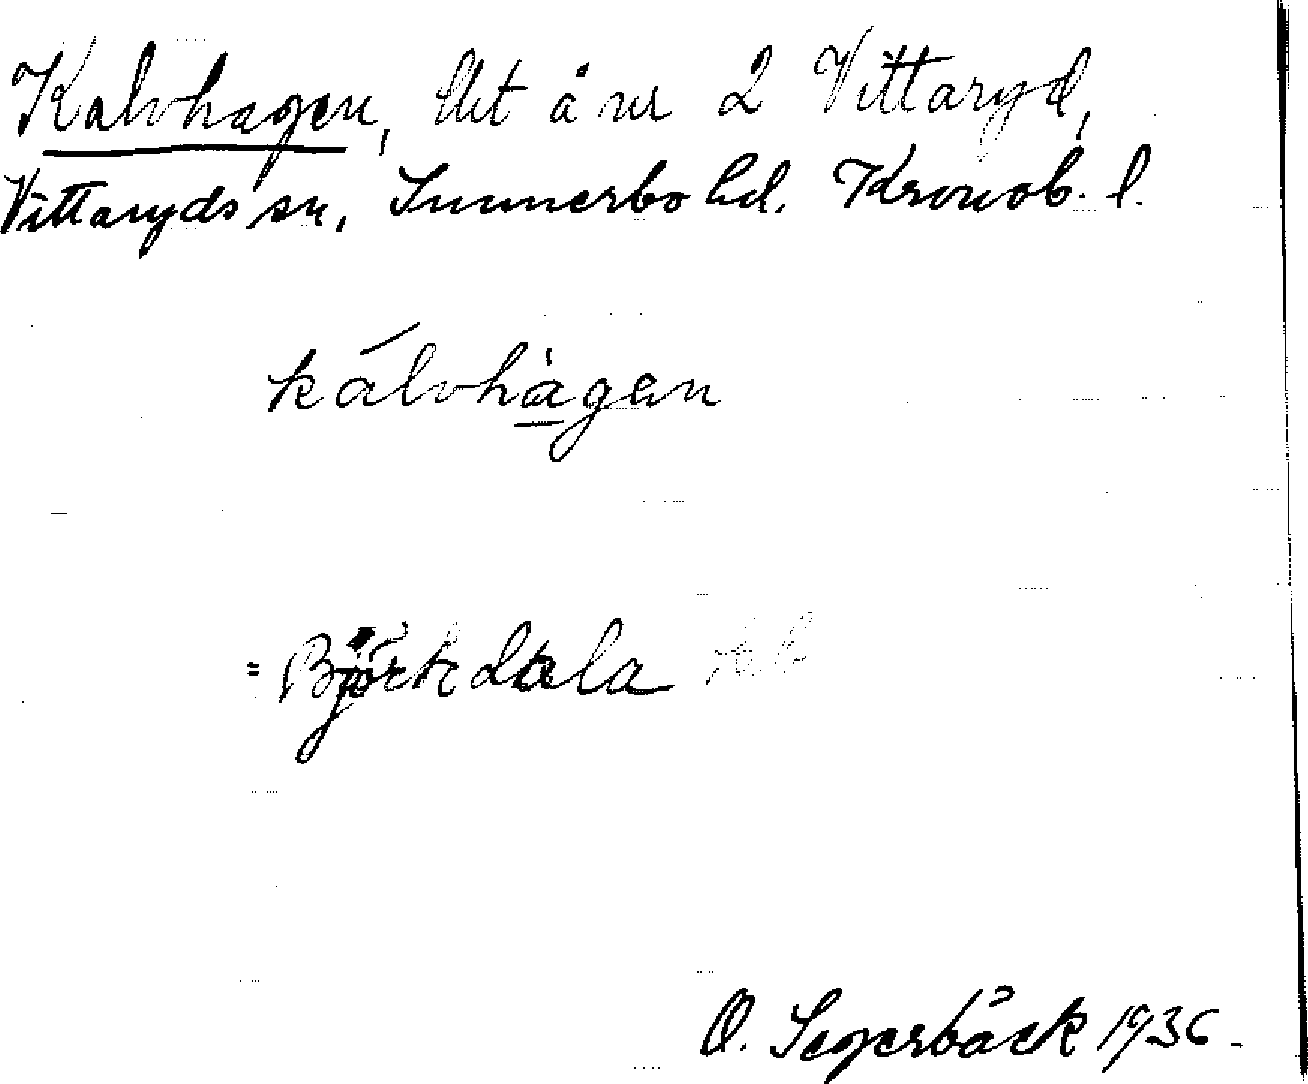 Kalvhagen, lht å nr 2 Vittaryd,
Vittaryds sn, Sunnerbo hd. Kronob. l.
kálvhàgen
= Björkdala
O. Segerbäck 1936.